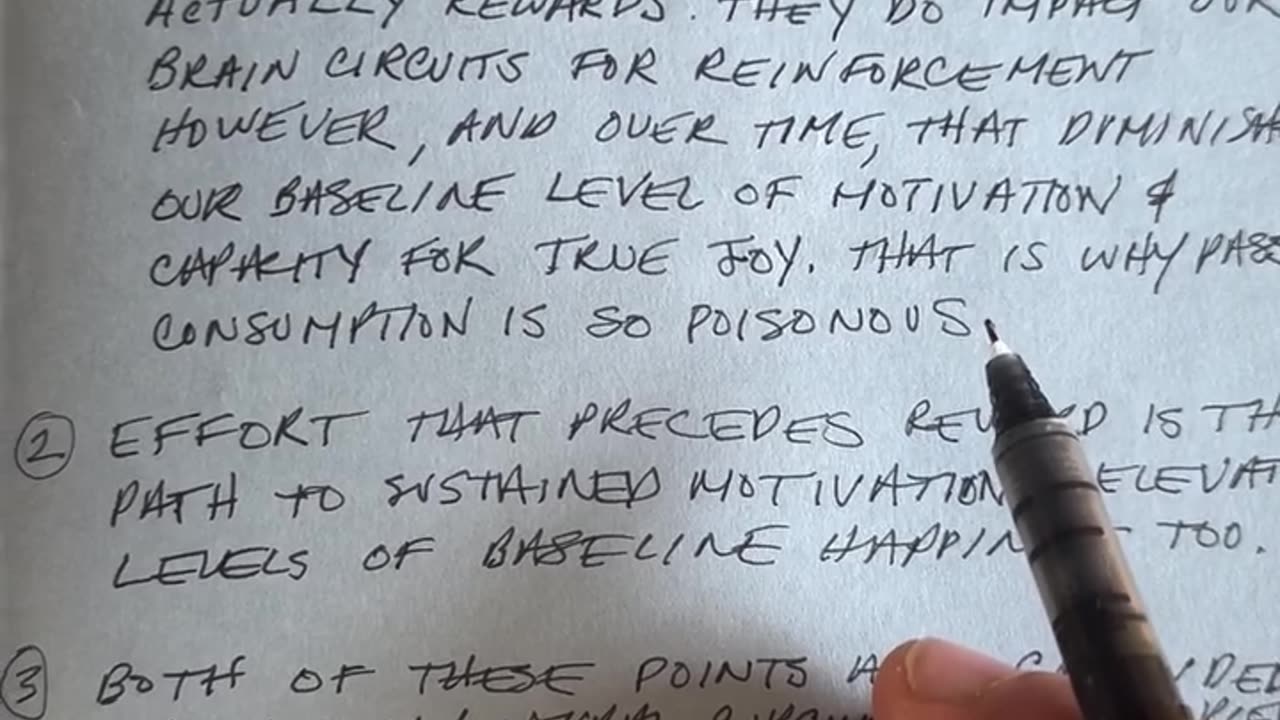 ACTUALLY REWARDS. THEY DO IMPACT OUR
BRAIN CIRCUITS FOR REINFORCEMENT
HOWEVER, AND OVER TIME, THAT DIMINISH
OUR BASELINE LEVEL OF MOTIVATION &
CAPACITY FOR TRUE JOY. THAT IS WHY PASS
CONSUMPTION IS SO POISONOUS.
② EFFORT THAT PRECEDES IS TH
PATH TO SUSTAINED MOTIVATION ELEVAT
LEVELS OF BASELINE TOO.
③ BOTH OF THESE POINTS